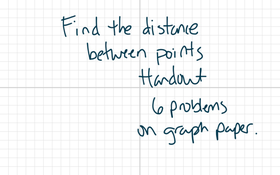 Find the distance
between points
Handout
6 problems
on graph paper.